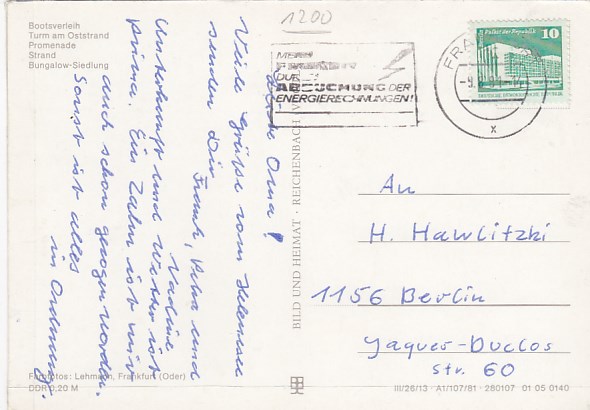 Bootsverleih
Turm am Oststrand
Promenade
Strand
Bungalow-Siedlung
1200
DURCH
ABSUCHUNG DER
ENERGIERECHNUNGEN!
FRA
Palast der Republik 10
DEUTSCHE DEMOKRATISCHE REPUBLIK
x
Liebe Oma!
Viele Grüße vom Helenesee
senden Dir
Frank, Petra und
Nadine
Unterkunft und Wetter ist
prima. Ein Zahn ist mir
auch schon gezogen worden.
Sonst ist alles
in Ordnung.
BILD UND HEIMAT · REICHENBACH
An
H. Hawlitzki
1156 Berlin
Jaques-Duclos
Str. 60
Farbfotos: Lehmann, Frankfurt (Oder)
DDR 0,20 M
III/26/13 · A1/107/81 · 280107 01 05 0140